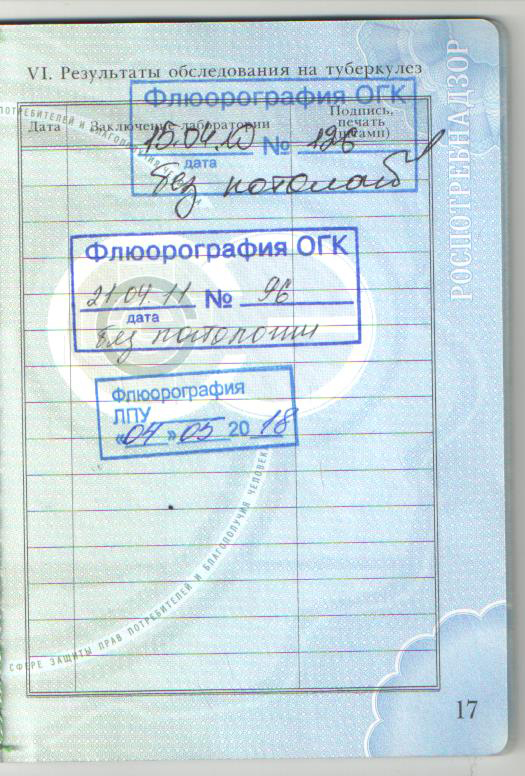 VI. Результаты обследования на туберкулез
Дата
Заключение лаборатории
Подпись, печать (штамп)
Флюорография ОГК
15.04.10 № 126
дата
без патолог
Флюорография ОГК
21.04.11 № 96
дата
без патологии
Флюорография
ЛПУ
«04» 05 2018
РОСПОТРЕБНАДЗОР
ПОТРЕБИТЕЛЕЙ И БЛАГОПОЛУЧИЯ ЧЕЛОВЕКА
СФЕРЕ ЗАЩИТЫ ПРАВ ПОТРЕБИТЕЛЕЙ И БЛАГОПОЛУЧИЯ ЧЕЛОВЕКА
17